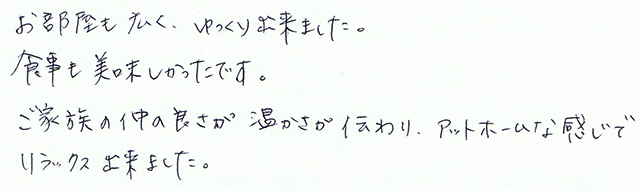 お部屋も広く、ゆっくり出来ました。
食事も美味しかったです。
ご家族の仲の良さが温かさが伝わり、アットホームな感じで
リラックス出来ました。